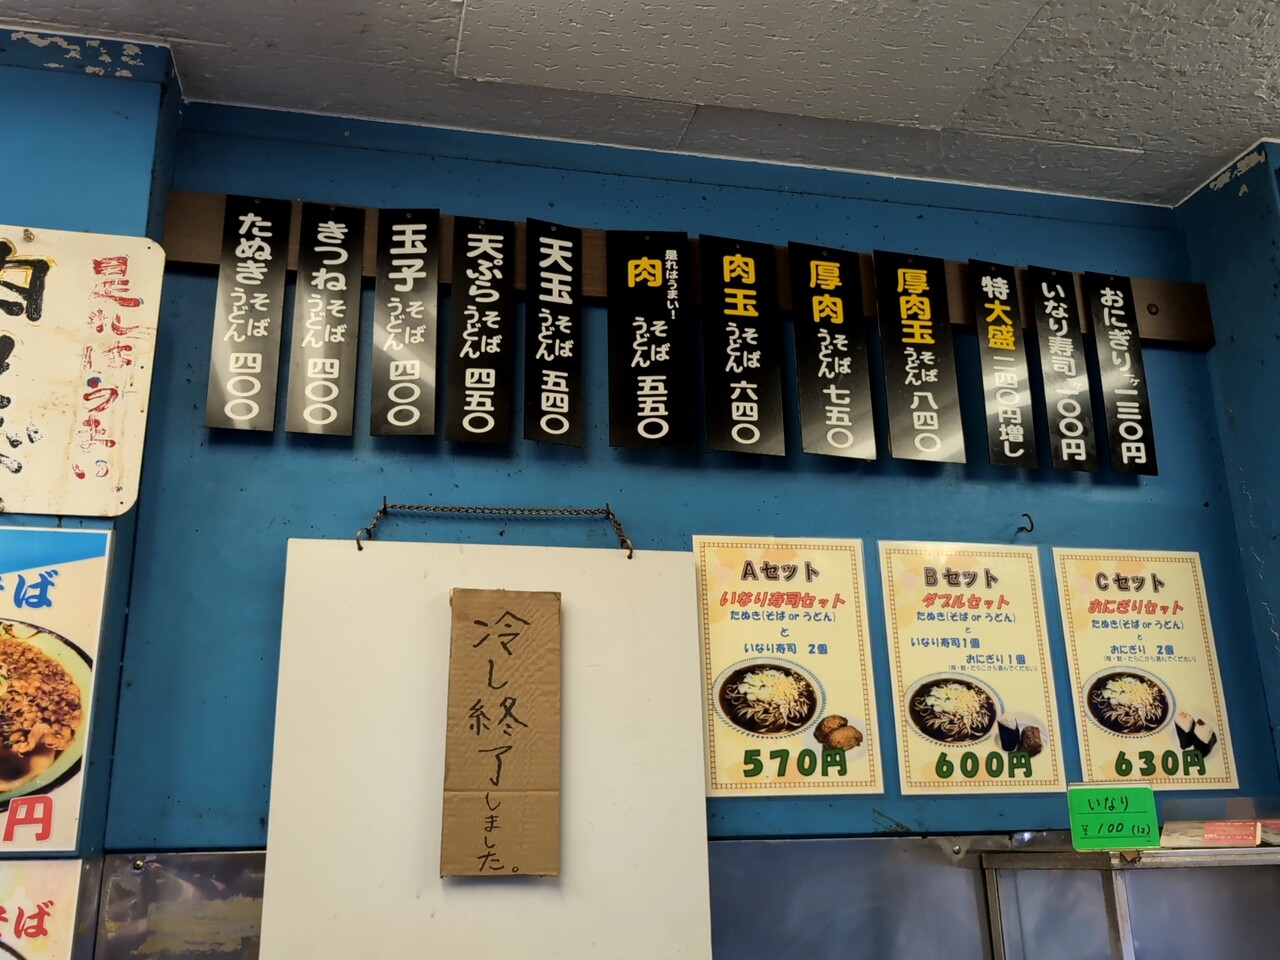 たぬき そば うどん 四〇〇
きつね そば うどん 四〇〇
玉子 そば うどん 四〇〇
天ぷら そば うどん 四五〇
天玉 そば うどん 五四〇
是れはうまい！
肉 そば うどん 五五〇
肉玉 そば うどん 六四〇
厚肉 そば うどん 七五〇
厚肉玉 そば うどん 八四〇
特大盛 二四〇円増し
いなり寿司 一ケ 一〇〇円
おにぎり 一ケ 一三〇円
是れはうまい
肉
そば
円
そば
冷し終了しました。
Aセット
いなり寿司セット
たぬき(そば or うどん)
と
いなり寿司 2個
570円
Bセット
ダブルセット
たぬき(そば or うどん)
と
いなり寿司1個
おにぎり 1個
(梅・鮭・たらこから選んでください)
600円
Cセット
おにぎりセット
たぬき(そば or うどん)
と
おにぎり 2個
(梅・鮭・たらこから選んでください)
630円
いなり
¥100 (1コ)